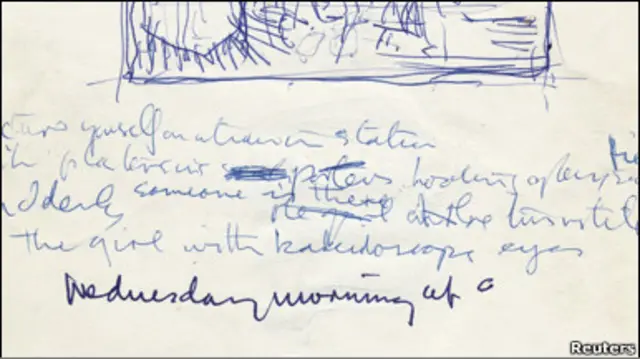 cture yourself on a train in station
ith plasticine porters looking
uddenly someone is there at the turnstil
the girl with kaleidoscope eyes
Wednesday morning at
Reuters